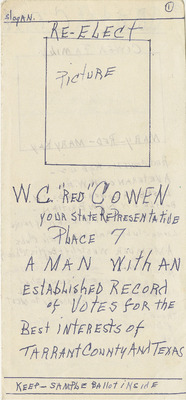 Slogan.
1
RE-ELECT
Picture
W.C. "RED" COWEN
your State Representative
Place 7
A MAN With AN
Established Record
of Votes for the
Best interests of
TARRANT County And Texas
KEEP - SAMPLE BAllot iNSide